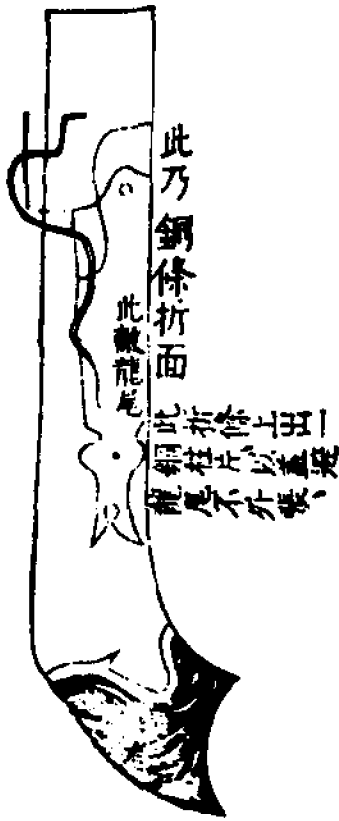 此乃銅條折面
此龍尾
此折條上出一
銅柱片、以蓋
龍尾不外張、